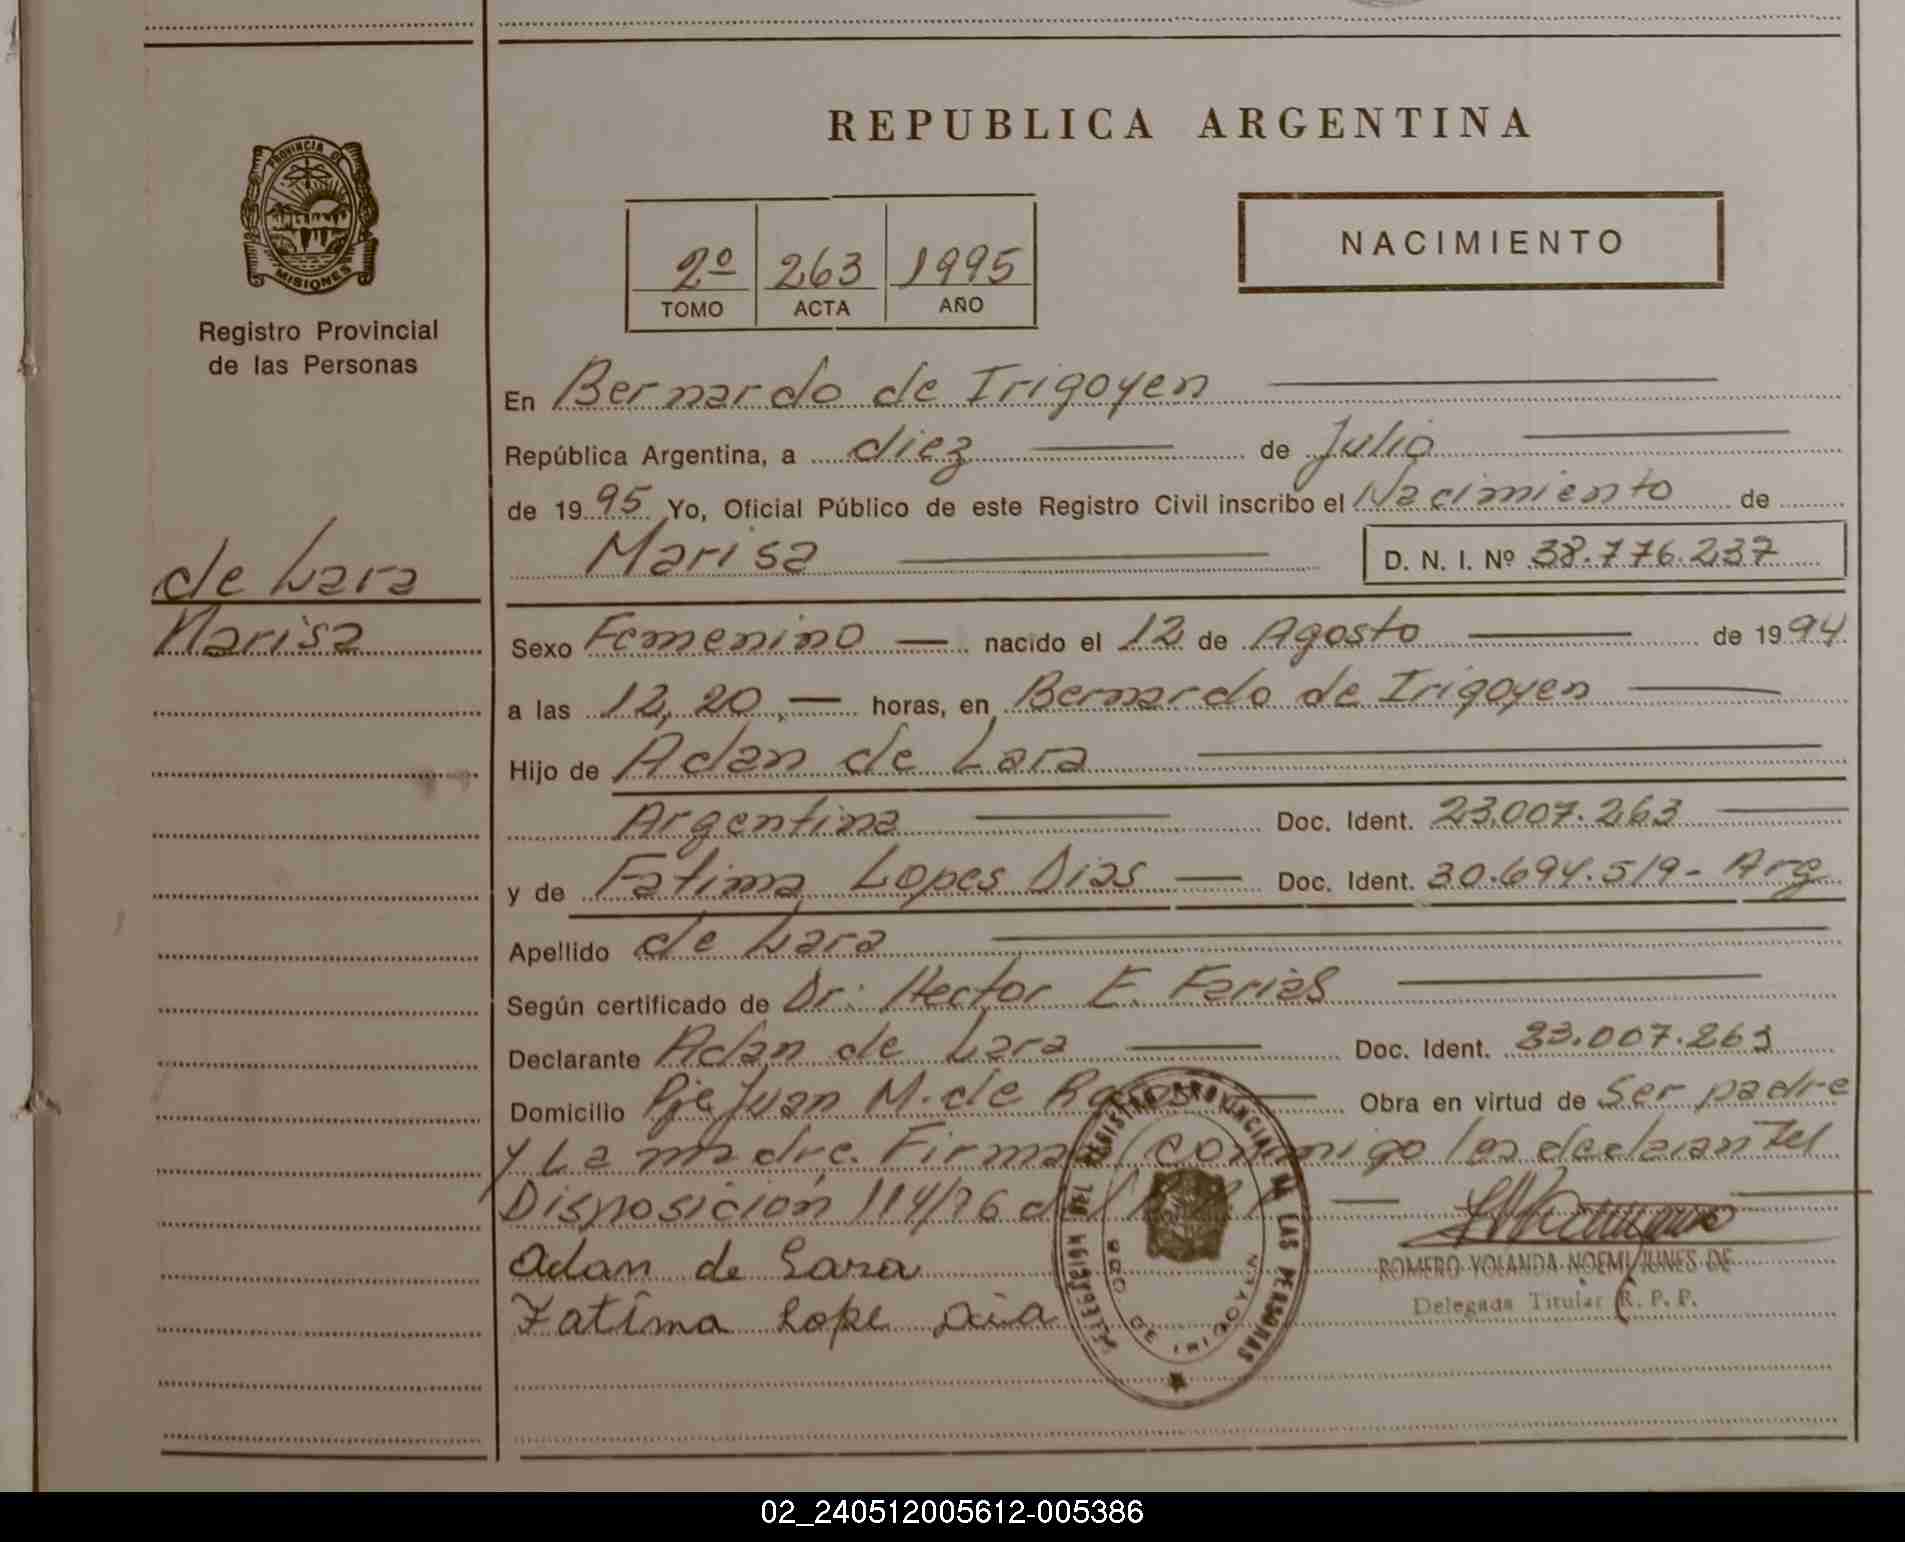 REPUBLICA ARGENTINA
PROVINCIA DE
MISIONES
Registro Provincial
de las Personas
2º 263 1995
TOMO ACTA AÑO
NACIMIENTO
En Bernardo de Irigoyen
República Argentina, a diez de Julio
de 1995 Yo, Oficial Público de este Registro Civil inscribo el Nacimiento de
Marisa D. N. I. Nº 38.776.237
de Lara
Marisa
Sexo Femenino nacido el 12 de Agosto de 1994
a las 12,20,- horas, en Bernardo de Irigoyen
Hijo de Adan de Lara
Argentina Doc. Ident. 23.007.263
y de Fatima Lopes Dias Doc. Ident. 30.694.519- Arg
Apellido de Lara
Según certificado de Dr. Hector E. Farias
Declarante Adan de Lara Doc. Ident. 23.007.263
Domicilio Pje Juan M. de Obra en virtud de Ser padre
y La madre. Firma conmigo
Disposición 114/76
Adan de Lara
Fatima Lope Dia
DELEGACION DEL REGISTRO PROVINCIAL DE LAS PERSONAS
BDO DE IRIGOYEN
ROMERO YOLANDA NOEMI JUNES DE
Delegada Titular R. P. P.
02_240512005612-005386